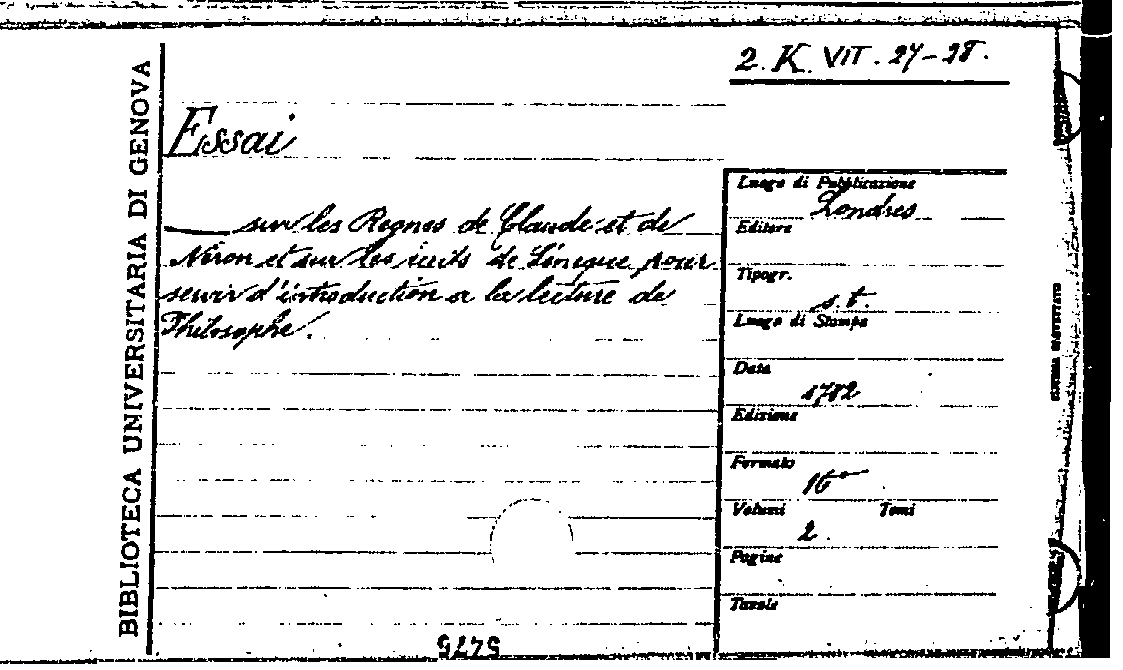 2. K. VIT. 27-28.
BIBLIOTECA UNIVERSITARIA DI GENOVA
Essai
sur les Regnes de Claude et de
Néron et sur les écrits de Sénèque pour
servir d'introduction a la lecture de
Philosophe.
Luogo di Pubblicazione
Londres
Editore
Tipogr.
s. t.
Luogo di Stampa
Data
1782
Edizione
Formato
16°
Volumi Tomi
2.
Pagine
Tavole
5475